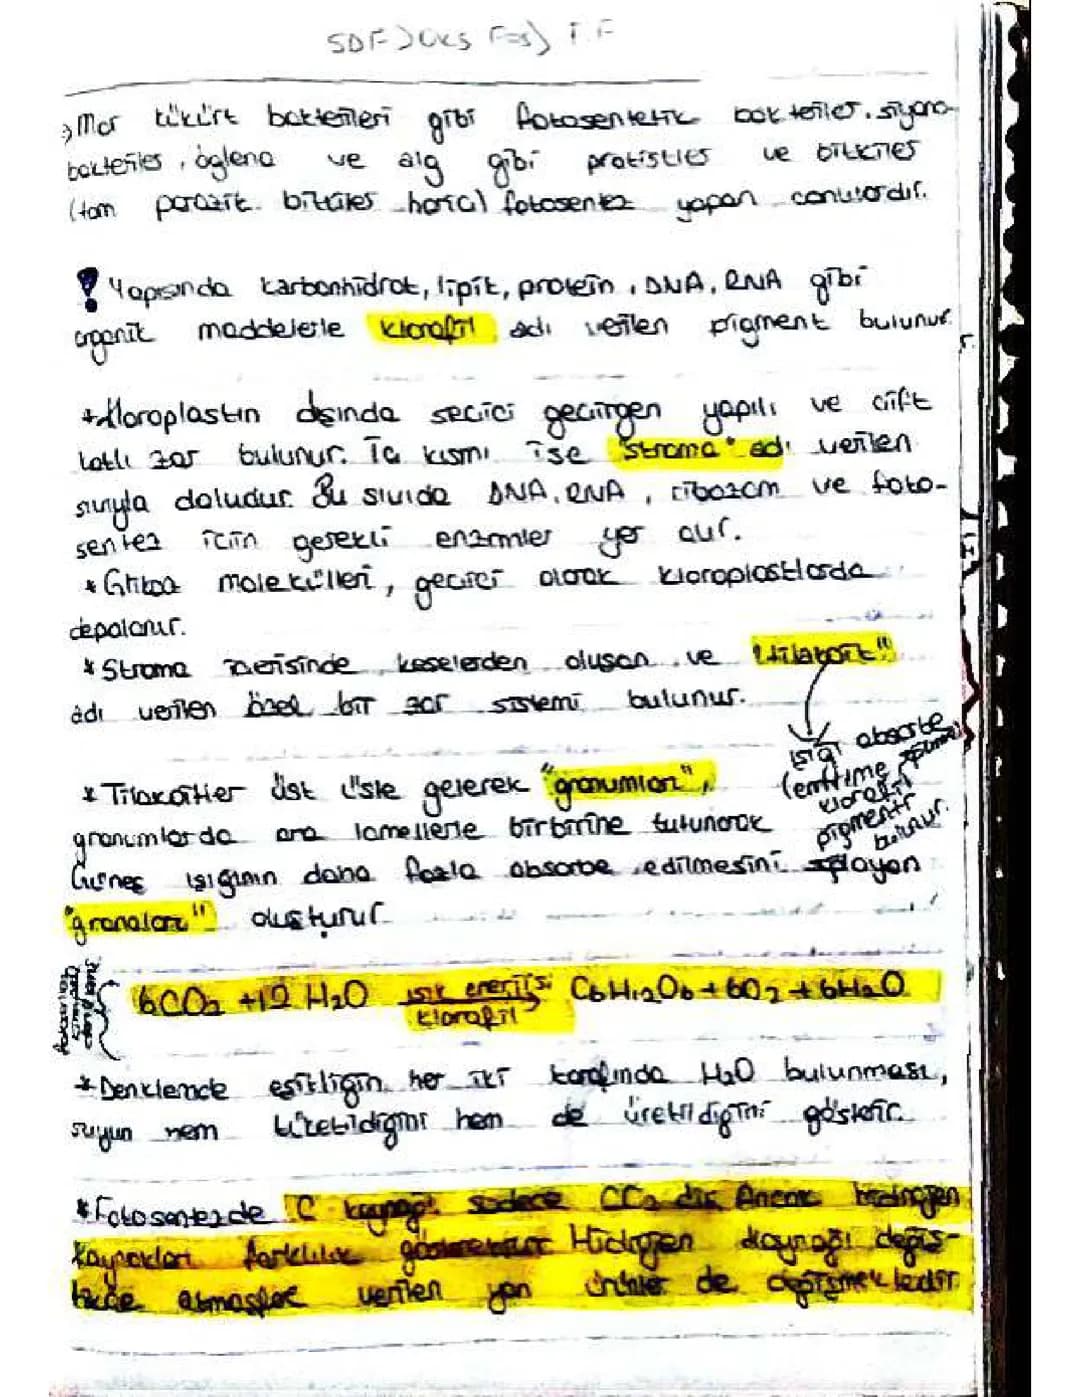 Mor kükürt bakterileri gibi fotosentetik bakteriler, siyano-
bakteriler, öglena ve alg gibi protistler ve bitkiler
(tam parazit bitkiler hariç) fotosentez yapan canlılardır.
! Yapısında karbonhidrat, lipit, protein, DNA, RNA gibi
organik maddelerle klorofil adı verilen pigment bulunur.
* Kloroplastın dışında seçici geçirgen yapılı ve çift
katlı zar bulunur. İç kısmı ise "stroma" adı verilen
sıvıyla doludur. Bu sıvıda DNA, RNA, ribozom ve foto-
sentez için gerekli enzimler yer alır.
* Glikoz molekülleri, geçici olarak kloroplastlarda
depolanır.
* Stroma içerisinde keselerden oluşan ve "tilakoit"
adı verilen özel bir zar sistemi bulunur.
ışığı absorbe
(emilme
klorofil
pigmenti
bulunur.
* Tilakoitler üst üste gelerek "granumları",
granumlarda ara lamellerle birbirine tutunarak
Güneş ışığının daha fazla absorbe edilmesini sağlayan
"granaları" oluşturur.
6CO₂ + 12 H₂O ışık enerjisi C6H12O6 + 6O₂ + 6H₂O
klorofil
* Denklemde eşitliğin her iki tarafında H₂O bulunması,
suyun hem tüketildiğini hem de üretildiğini gösterir.
* Fotosentezde C kaynağı sadece CO₂ dir. Ancak hidrojen
kaynakları farklılık göstermektedir Hidrojen kaynağı değiş-
tikçe atmosfere verilen yan ürünler de değişmektedir